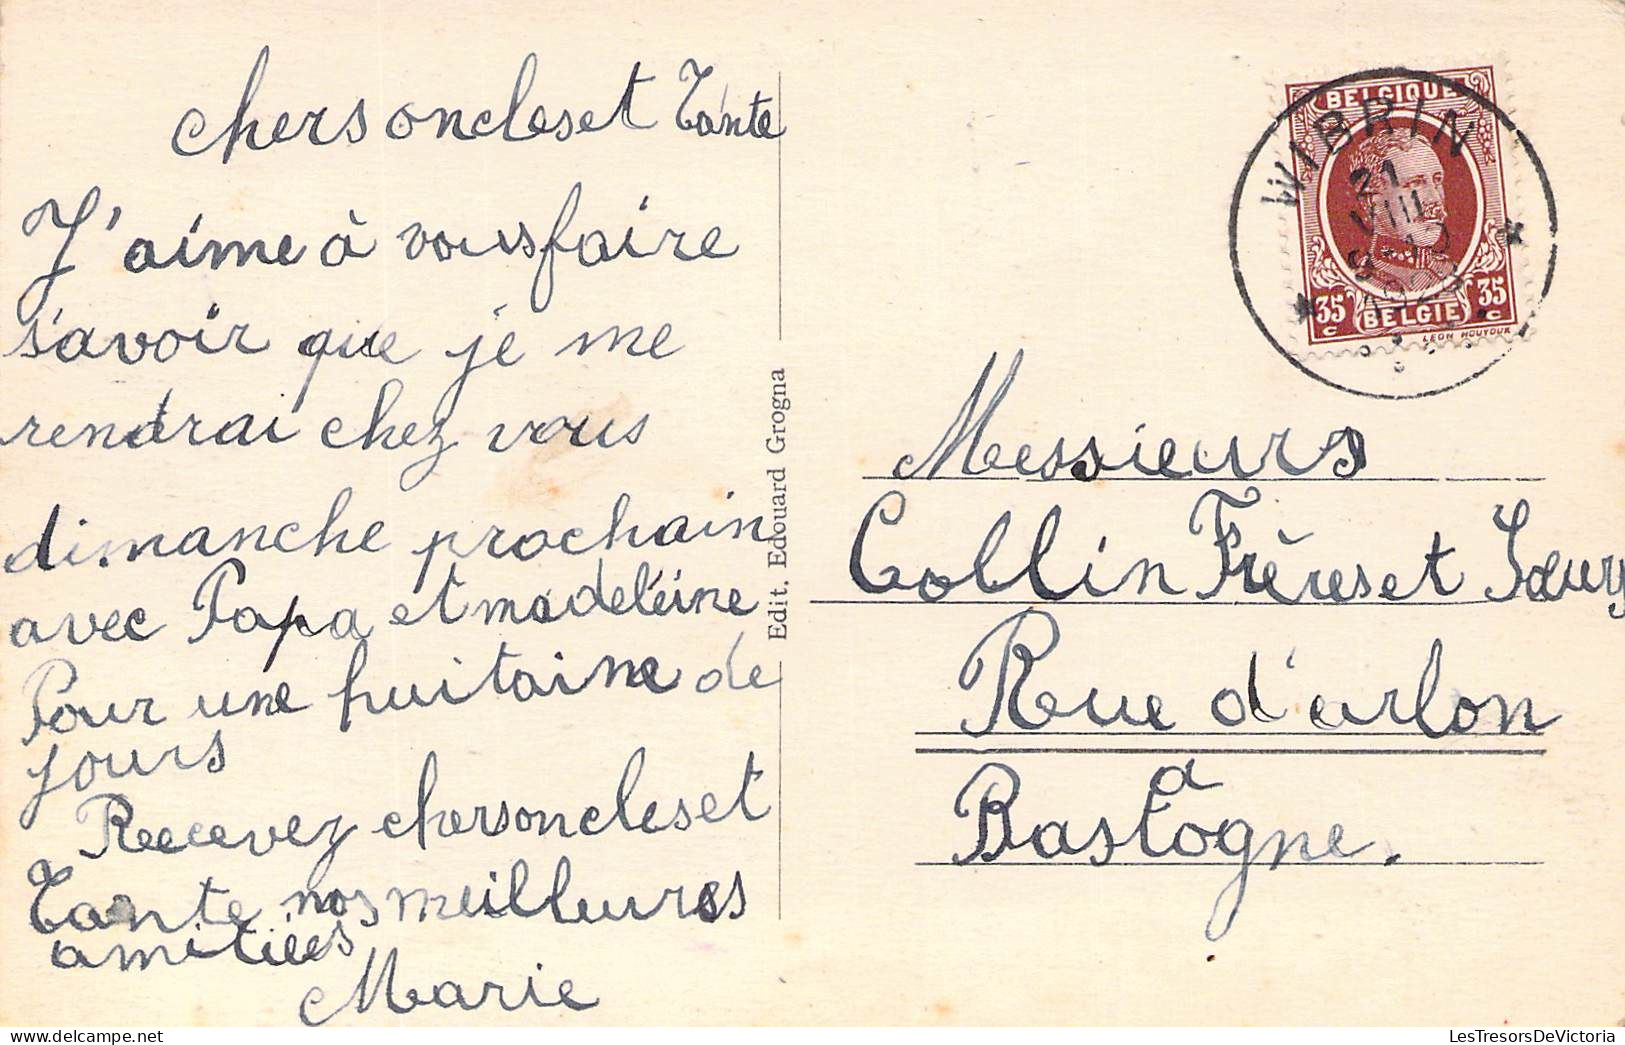 chers oncleset Tante
J'aime à vousfaire
savoir que je me
rendrai chez vous
dimanche prochain
avec Papa et madeléine
Pour une huitaine de
jours
Recevez chersoncleset
Tante nos meilleures
amitiées
Marie
Edit. Edouard Grogna
BELGIQUE
WIBRIN
21
VIII
35 c
BELGIE
35 c
LEON HOUYOUX
Messieurs
Collin Frèreset Sœurs
Rue d'arlon
a
Bastogne.
LesTresorsDeVictoria